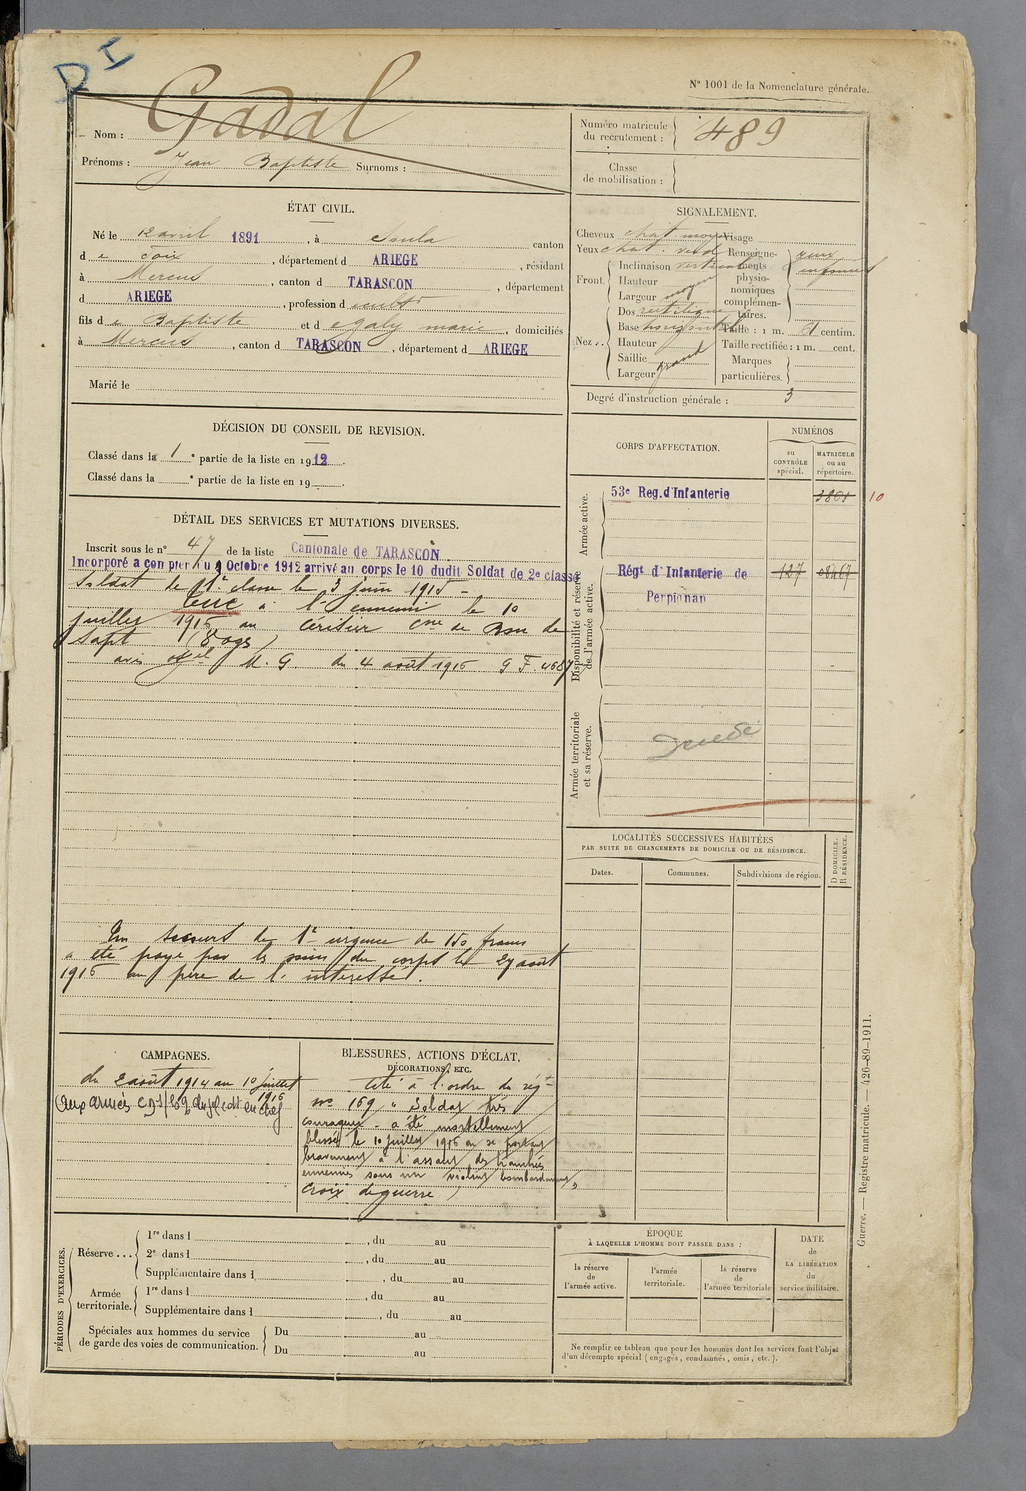 D I
N° 1001 de la Nomenclature générale.
Nom : Gadal
Prénoms : Jean Baptiste Surnoms :
Numéro matricule du recrutement : 489
Classe de mobilisation :
ÉTAT CIVIL.
Né le 12 avril 1891, à Soula canton
d e Foix, département d ARIEGE, résidant
à Mercus, canton d TARASCON, département
d ARIEGE, profession d
fils d e Baptiste et d egaly marie, domiciliés
à Mercus, canton d TARASCON, département d ARIEGE
Marié le
SIGNALEMENT.
Cheveux chat. moyen Visage
Yeux chat. verd
Front. Inclinaison verticale
Hauteur
Largeur moyen
Nez .. Dos rectiligne
Base horizontale
Hauteur
Saillie
Largeur grand
Renseignements physionomiques complémentaires.
Taille : 1 m. centim.
Taille rectifiée : 1 m. cent.
Marques particulières.
Degré d'instruction générale : 3
DÉCISION DU CONSEIL DE REVISION.
Classé dans la 1 e partie de la liste en 1912.
Classé dans la e partie de la liste en 19 .
CORPS D'AFFECTATION.
NUMÉROS
au CONTRÔLE spécial.
MATRICULE ou au répertoire.
Armée active.
53e Reg. d'Infanterie 3801 10
Disponibilité et réserve de l'armée active.
Régt d'Infanterie de Perpignan 127
Armée territoriale et sa réserve.
DÉTAIL DES SERVICES ET MUTATIONS DIVERSES.
Inscrit sous le n° 47 de la liste Cantonale de TARASCON
Incorporé à compter du 9 Octobre 1912 arrivé au corps le 10 dudit Soldat de 2e classe
Soldat de 1e classe le 3 juin 1915 -
Tué à l'ennemi le 10
juillet 1915 au Cne de Ban de
Sapt (Vosges)
avis M. G. du 4 août 1915 G F.
Un secours de 1e urgence de 150 francs
a été payé par les soins du corps le 27 août
1915 au père de l'intéressé.
LOCALITÉS SUCCESSIVES HABITÉES
PAR SUITE DE CHANGEMENTS DE DOMICILE OU DE RÉSIDENCE.
Dates.
Communes.
Subdivisions de région.
D DOMICILE. R RÉSIDENCE.
CAMPAGNES.
du 2 août 1914 au 10 juillet
1915
Aux armées
BLESSURES, ACTIONS D'ÉCLAT,
DÉCORATIONS, ETC.
Cité à l'ordre du régt
no 169 "Soldat très
courageux - a été mortellement
blessé le 10 juillet 1915 en se portant
bravement à l'assaut des tranchées
ennemies sous un violent bombardement"
Croix de guerre
PÉRIODES D'EXERCICES.
Réserve ... 1re dans l , du au
2e dans l , du au
Supplémentaire dans l , du au
Armée territoriale. 1re dans l , du au
Supplémentaire dans l , du au
Spéciales aux hommes du service de garde des voies de communication. Du au
Du au
ÉPOQUE
À LAQUELLE L'HOMME DOIT PASSER DANS :
la réserve de l'armée active.
l'armée territoriale.
la réserve de l'armée territoriale
DATE de LA LIBÉRATION du service militaire.
Ne remplir ce tableau que pour les hommes dont les services font l'objet
d'un décompte spécial (engagés, condamnés, omis, etc.).
Guerre. — Registre matricule. — 426-89-1911.